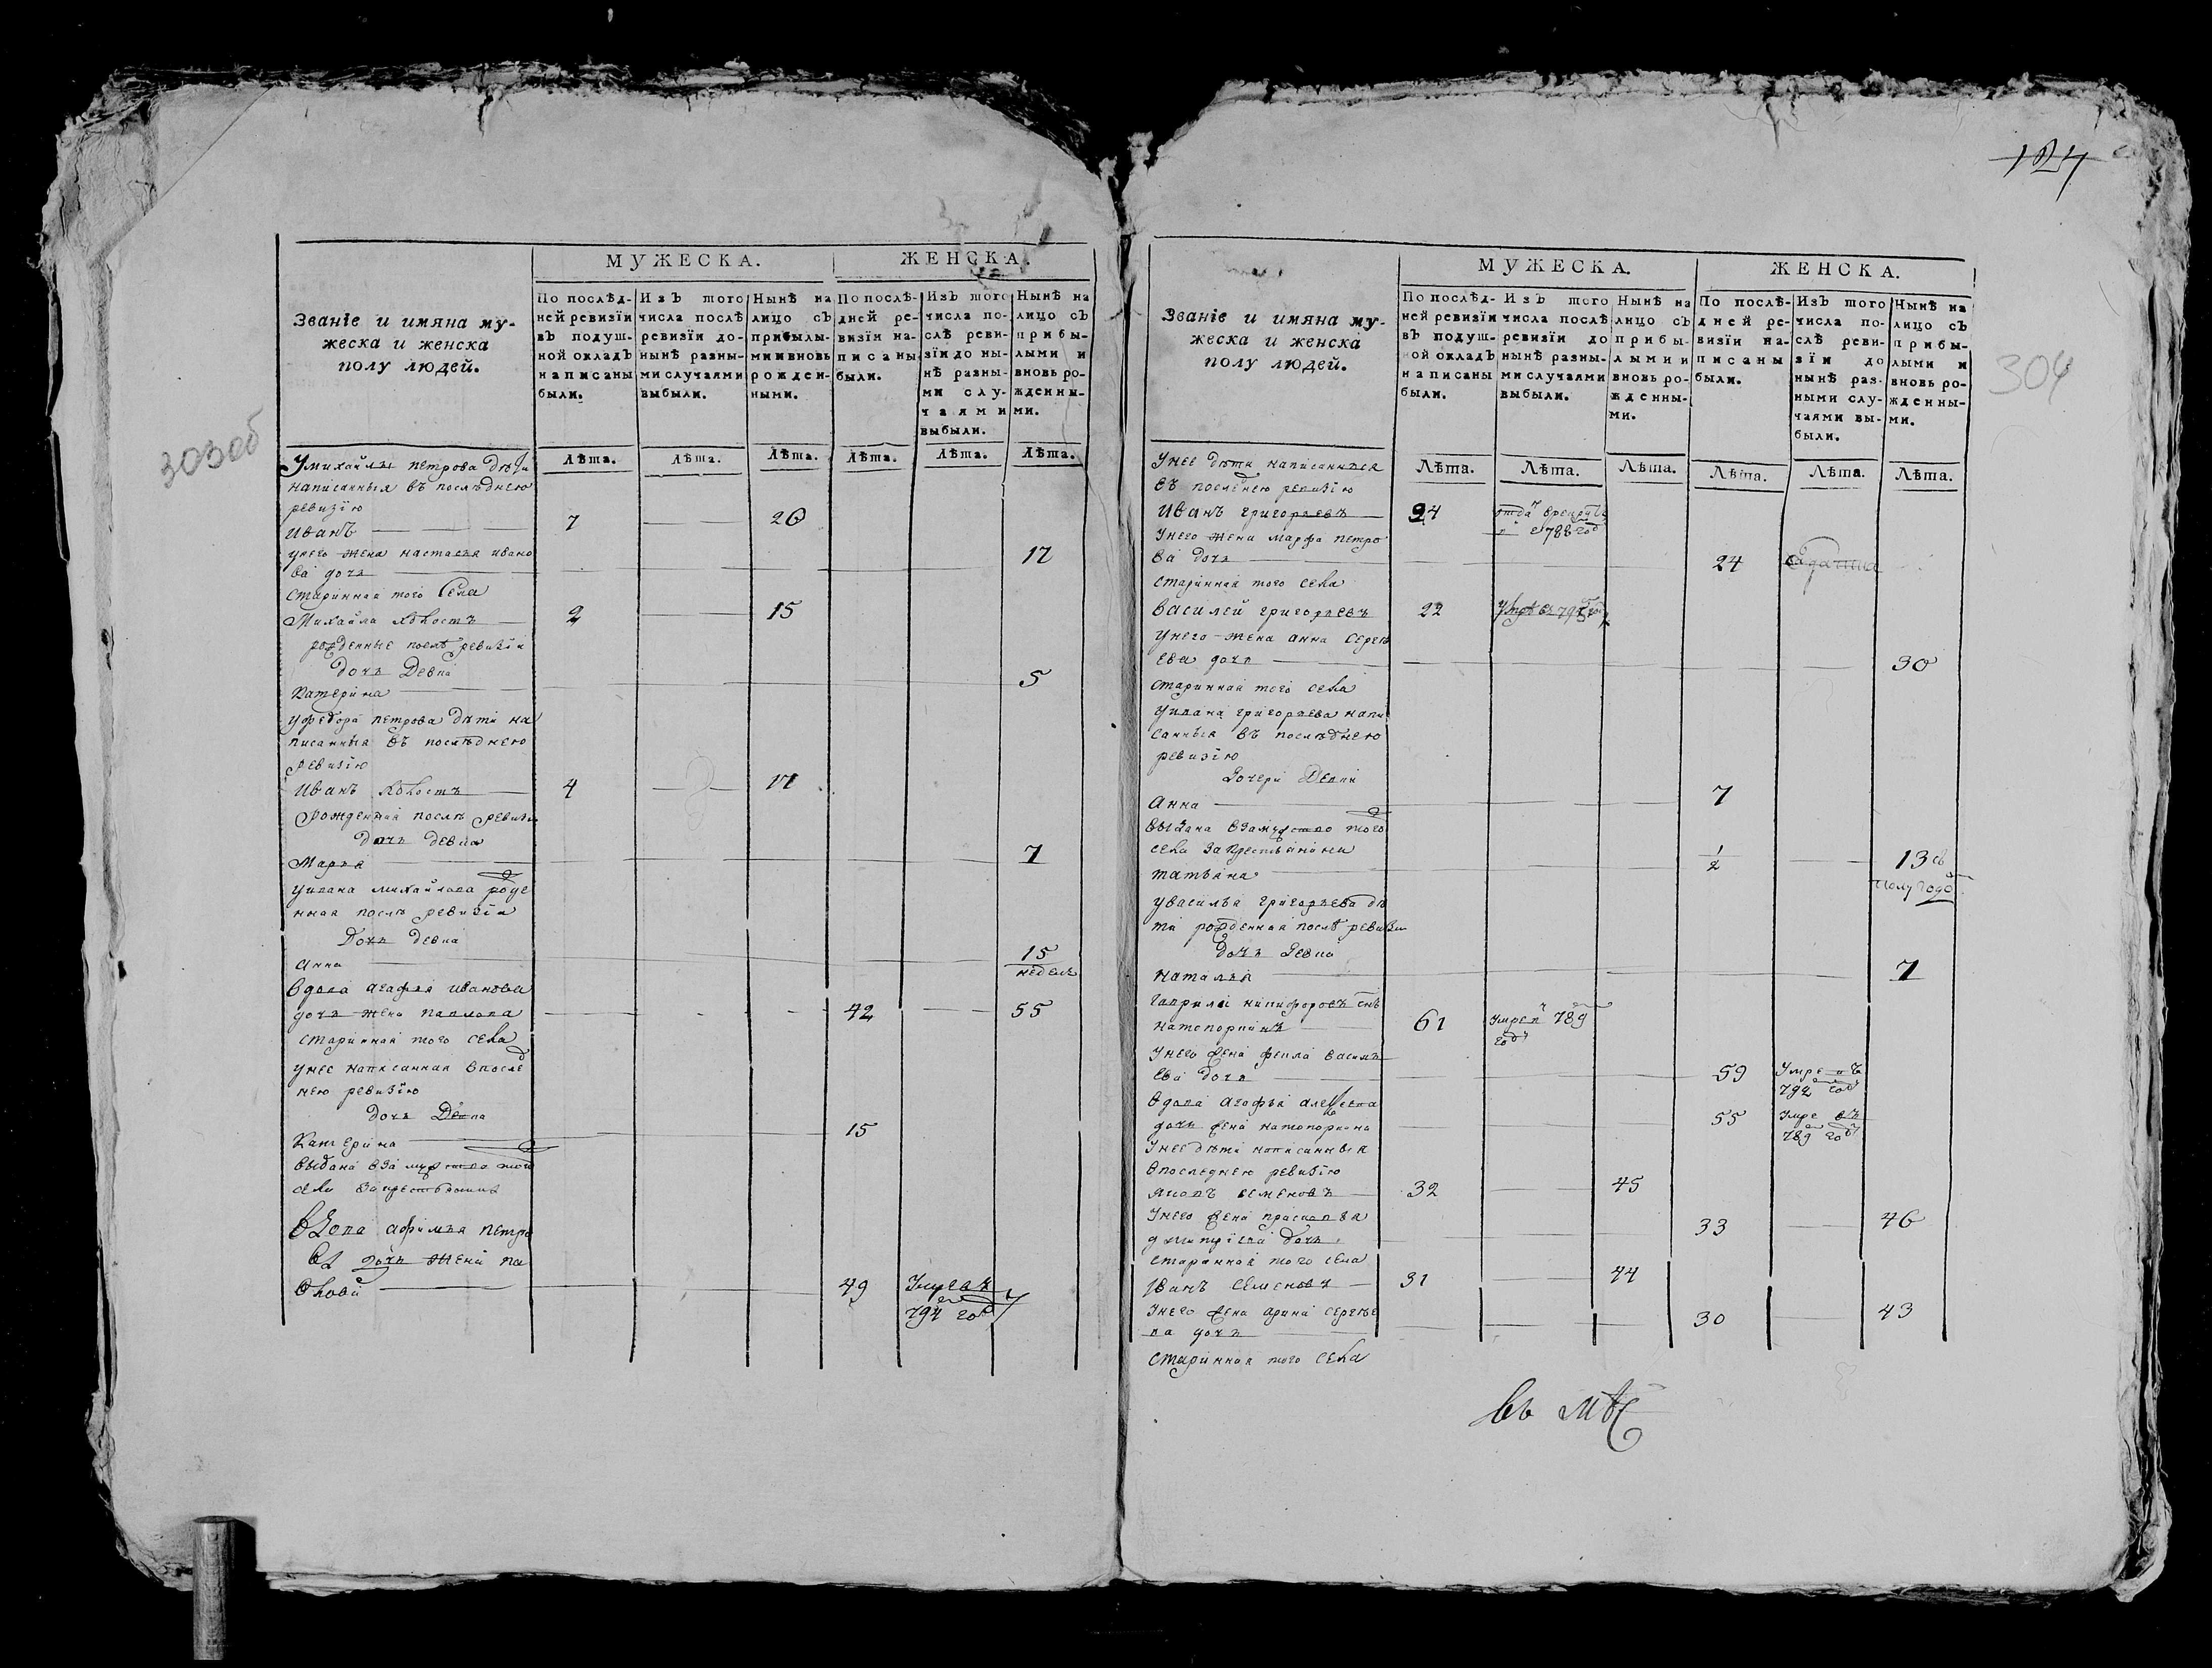 124
303об
304
МУЖЕСКА.
ЖЕНСКА.
Званїе и имяна му-
жеска и женска
полу людей.
По послѣд-
ней ревизїи
въ подуш-
ной окладъ
написаны
были.
Изъ того
числа послѣ
ревизїи до-
нынѣ разны-
ми случаями
выбыли.
Нынѣ на
лицо съ
прибылы-
ми и вновь
рожден-
ными.
По послѣ-
дней ре-
визїи на-
писаны
были.
Изъ того
числа по-
слѣ реви-
зїи до ны-
нѣ разны-
ми слу-
чаями
выбыли.
Нынѣ на
лицо съ
прибы-
лыми и
вновь ро-
жденны-
ми.
Лѣта. Лѣта. Лѣта. Лѣта. Лѣта. Лѣта.
Умихайлы петрова дѣти
написанныя въ послѣднею
ревизїю
Иванъ 7 20
унего жена настасья ивано
ва дочь 17
старинная того села
Михайла холостъ 2 15
рожденные послѣ ревизїи
дочь девка
Катерина 5
уфедора петрова дѣти на
писанныя въ послѣднею
ревизїю
Иванъ холостъ 4 17
Рожденная послѣ ревизїи
дочь девка
Марья 7
уивана михайлова рожде
нная послѣ ревизїи
Дочь девка
Анна 15
неделъ
Вдова агафья иванова
дочь жена павлова 42 55
старинная того села
унее написанная впослед
нею ревизїю
дочь Девка
Катерина 15
выдана взамужство того
села закрестьянина
вдова афимья петро
ва дочь жена
49 Умре въ
794 году
МУЖЕСКА.
ЖЕНСКА.
Званїе и имяна му-
жеска и женска
полу людей.
По послѣд-
ней ревизїи
въ подуш-
ной окладъ
написаны
были.
Изъ того
числа послѣ
ревизїи до
нынѣ разны-
ми случаями
выбыли.
Нынѣ на
лицо съ
прибы-
лыми и
вновь ро-
жденны-
ми.
По послѣ-
дней ре-
визїи на-
писаны
были.
Изъ того
числа по-
слѣ реви-
зїи до
нынѣ раз-
ными слу-
чаями вы-
были.
Нынѣ на
лицо съ
прибы-
лыми и
вновь ро-
жденны-
ми.
Лѣта. Лѣта. Лѣта. Лѣта. Лѣта. Лѣта.
Унее дѣти написанныя
въ последнею ревизїю
Иванъ григорьевъ 24 отда врекруты
788 году
Унего жена марфа петро
ва дочь 24
старинная того села
василей григорьевъ 22
Унего жена анна сергѣ
ева дочь 30
старинная того села
уивана григорьева напи
санныя въ послѣднею
ревизїю
дочери Девки
Анна 7
выдана взамужство того
села закрестьянина
татьяна 1/2 13 съ
полугодо
увасилья григорьева дѣ
ти рожденная послѣ ревизїи
дочь девка
наталья 7
гаврила никифоровъ снъ
61 Умре 789
году
Унего жена фекла василь
ева дочь 59 Умре въ
792 году
вдова агофья
дочь жена 55 Умре въ
789 году
Унее дѣти написанныя
впоследнею ревизїю
яковъ семеновъ 32 45
Унего жена прасковья
дмитрїева дочь 33 46
старинная того села
Иванъ семеновъ 31 44
Унего жена арина сергѣе
ва дочь 30 43
старинная того села